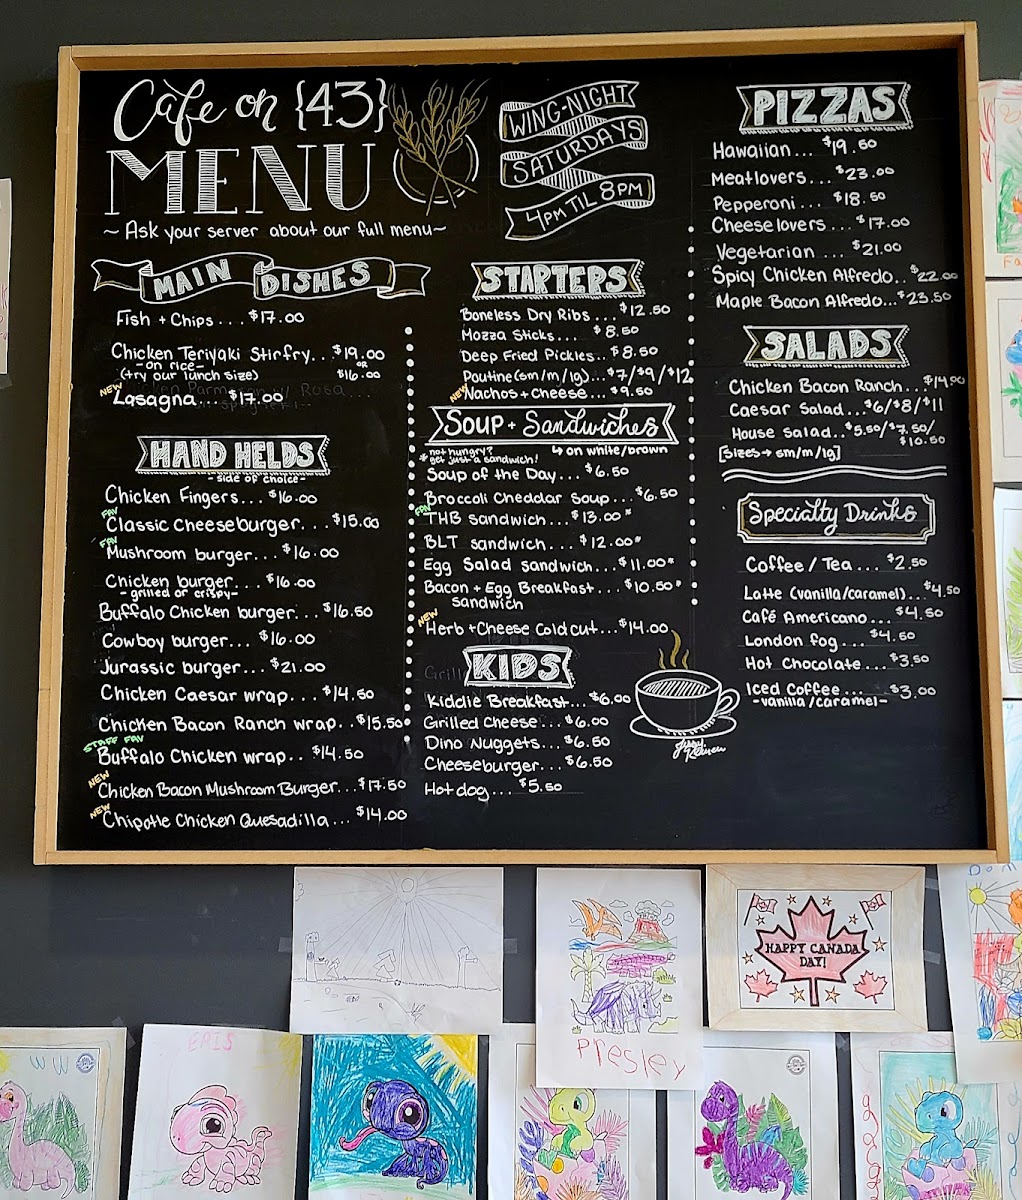 Café on {43}
MENU
~ Ask your server about our full menu ~
WING-NIGHT
SATURDAYS
4PM TIL 8PM
MAIN DISHES
Fish + Chips... $17.00
Chicken Teriyaki Stirfry... $19.00
-on rice- or
(try our lunch size) $16.00
NEW
Lasagna... $17.00
HAND HELDS
-side of choice-
Chicken Fingers... $16.00
FAV
Classic Cheeseburger... $15.00
FAV
Mushroom burger... $16.00
Chicken burger... $16.00
-grilled or crispy-
Buffalo Chicken burger... $16.50
Cowboy burger... $16.00
Jurassic burger... $21.00
Chicken Caesar wrap... $14.50
Chicken Bacon Ranch wrap.. $15.50
STAFF FAV
Buffalo Chicken wrap.. $14.50
NEW
Chicken Bacon Mushroom Burger... $17.50
NEW
Chipotle Chicken Quesadilla... $14.00
STARTERS
Boneless Dry Ribs... $12.50
Mozza Sticks... $8.50
Deep Fried Pickles.. $8.50
Poutine (sm/m/lg)... $7/$9/$12
NEW
Nachos + Cheese... $9.50
SOUP + Sandwiches
*not hungry? ↳ on white/brown
*get just a sandwich!
Soup of the Day... $6.50
Broccoli Cheddar Soup... $6.50
FAV
THB sandwich... $13.00*
BLT sandwich... $12.00*
Egg Salad sandwich... $11.00*
Bacon + Egg Breakfast... $10.50*
sandwich
NEW
Herb + Cheese Cold cut... $14.00
KIDS
Kiddie Breakfast... $6.00
Grilled Cheese... $6.00
Dino Nuggets... $6.50
Cheeseburger... $6.50
Hot dog... $5.50
PIZZAS
Hawaiian... $19.50
Meatlovers... $23.00
Pepperoni... $18.50
Cheeselovers... $17.00
Vegetarian... $21.00
Spicy Chicken Alfredo.. $22.00
Maple Bacon Alfredo... $23.50
SALADS
Chicken Bacon Ranch... $14.00
Caesar Salad... $6/$8/$11
House Salad.. $5.50/$7.50/
$10.50
[Sizes → sm/m/lg]
Specialty Drinks
Coffee / Tea... $2.50
Latte (vanilla/caramel)... $4.50
Café Americano... $4.50
London fog... $4.50
Hot Chocolate... $3.50
Iced Coffee... $3.00
-vanilla/caramel-
HAPPY CANADA
DAY!
Presley